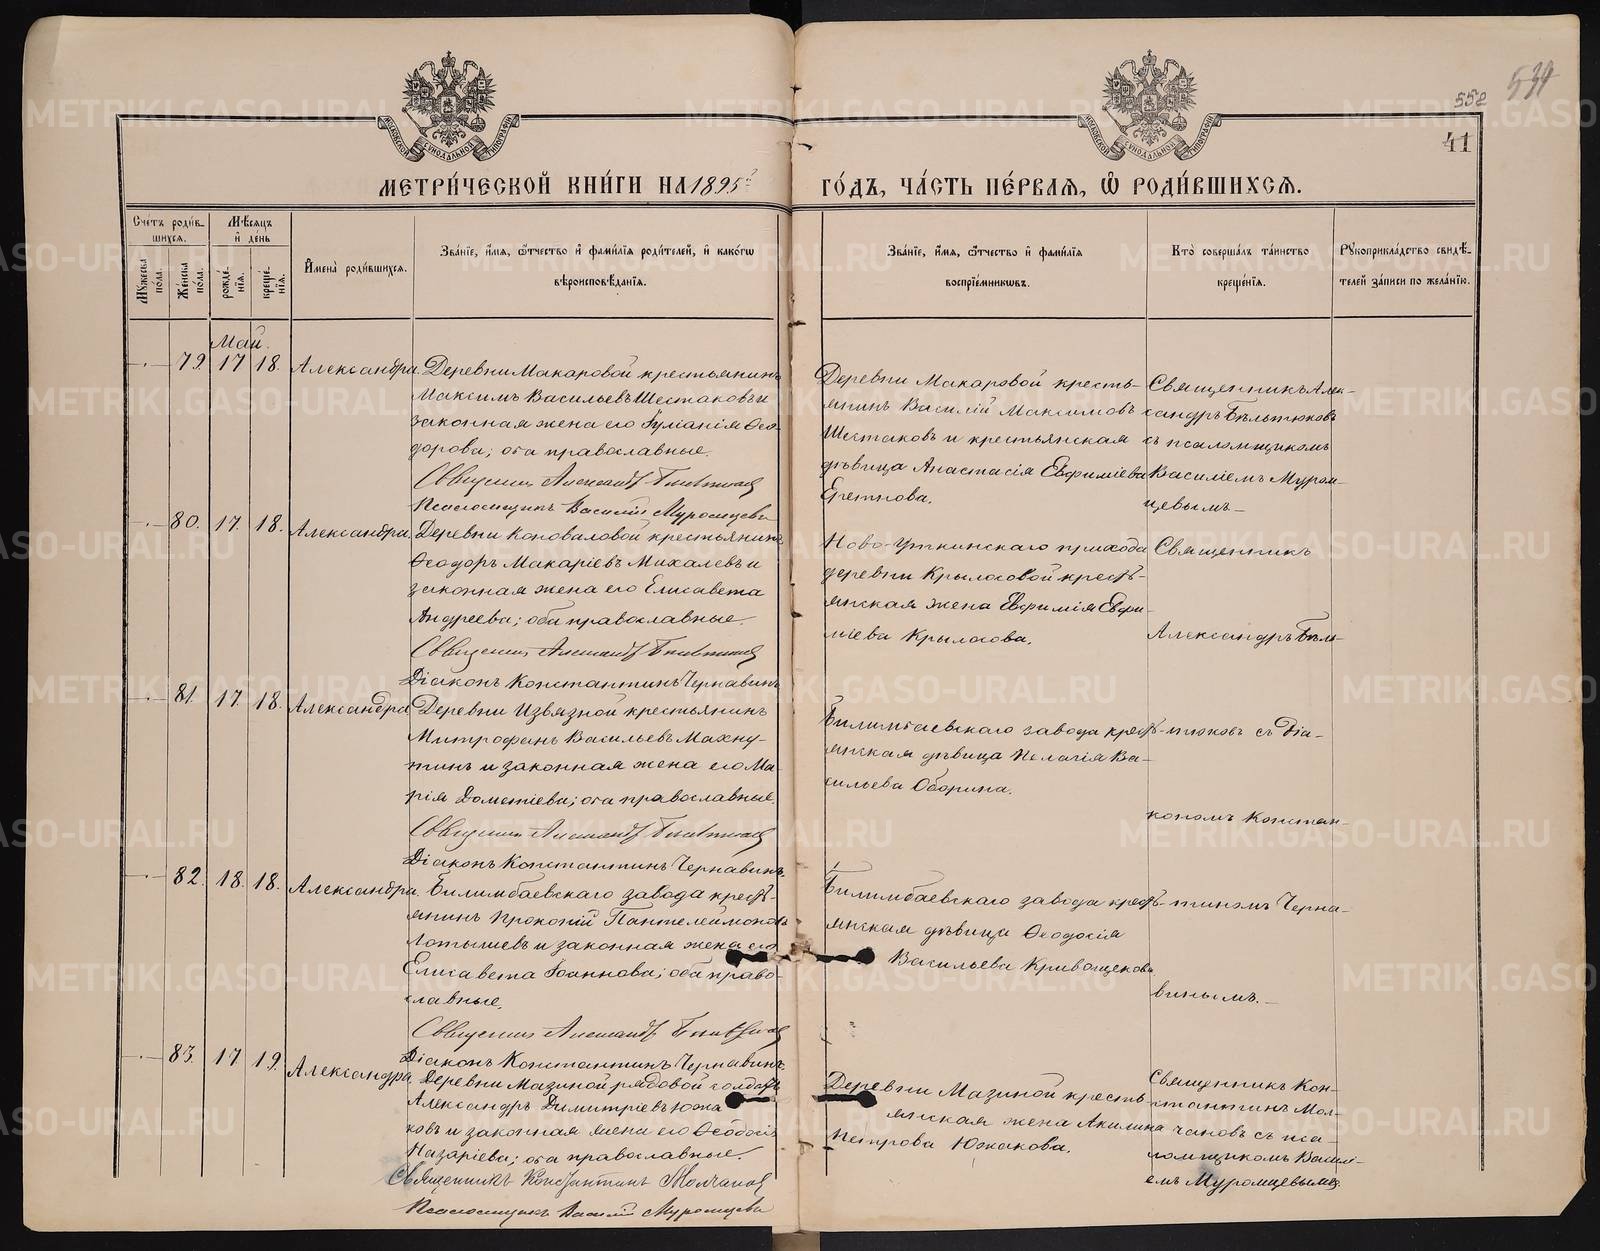 534
552
41
МОСКОВСКОЙ СѴНОДАЛЬНОЙ ТИПОГРАФІИ
МОСКОВСКОЙ СѴНОДАЛЬНОЙ ТИПОГРАФІИ
МЕТРИ́ЧЕСКОЙ КНИ́ГИ НА 1895й
ГО́ДЪ, ЧА́СТЬ ПЕ́РВАѦ, Ѡ҆ РОДИ́ВШИХСѦ.
Сче́тъ роди́в-
шихсѧ.
Мѣ́сѧцъ
и҆ де́нь
Мꙋ́жеска по́ла.
Же́нска по́ла.
рожде́-
нїѧ.
креще́-
нїѧ.
И҆мена̀ роди́вшихсѧ.
Зва́нїе, и҆́мѧ, ѻ҆́тчество и҆ фами́лїѧ роди́телей, и҆ како́гѡ
вѣроисповѣ́данїѧ.
Зва́нїе, и҆́мѧ, ѻ҆́тчество и҆ фами́лїѧ
воспрїе́мникѡвъ.
Кто̀ соверша́лъ та́инство
креще́нїѧ.
Рꙋкоприкла́дство свидѣ́-
телей за́писи по жела́нїю.
Май.
79. 17 18. Александра.
Деревни Макаровой крестьянинъ
Максимъ Васильевъ Шестаковъ и
законная жена его Іуліанія Ѳео-
дорова; оба православные.
Священникъ Александръ Бѣльтюковъ
Псаломщикъ Василій Муромцевъ
Деревни Макаровой кресть-
янинъ Василій Максимовъ
Шестаковъ и крестьянская
дѣвица Анастасія Евфиміева
Еретнова.
Священникъ Алек-
сандръ Бѣльтюковъ
съ псаломщикомъ
Василіемъ Муром-
цевымъ.
80. 17. 18. Александра.
Деревни Коноваловой крестьянинъ
Ѳеодоръ Макаріевъ Михалевъ и
законная жена его Елисавета
Андреева; оба православные.
Священникъ Александръ Бѣльтюковъ
Діаконъ Константинъ Чернавинъ
Ново-Уткинскаго прихода
деревни Крыласовой кресть-
янская жена Евфимія Евфи-
міева Крыласова.
Священникъ
Александръ Бѣль-
81. 17. 18. Александра
Деревни Извязной крестьянинъ
Митрофанъ Васильевъ Махну-
тинъ и законная жена его Ма-
рія Дометіева; оба православные.
Священникъ Александръ Бѣльтюковъ
Діаконъ Константинъ Чернавинъ.
Билимбаевскаго завода кресть-
янская дѣвица Пелагія Ва-
сильева Оборина.
тюковъ съ Діа-
кономъ Констан-
82. 18. 18. Александра.
Билимбаевскаго завода кресть-
янинъ Прокопій Пантелеймоновъ
Лотышевъ и законная жена его
Елисавета Іоаннова; оба право-
славные.
Священникъ Александръ Бѣльтюковъ
Діаконъ Константинъ Чернавинъ.
Билимбаевскаго завода кресть-
янская дѣвица Ѳеодосія
Васильева Кривощекова.
тиномъ Черна-
винымъ.
83. 17 19. Александра.
Деревни Мазиной рядовой солдатъ
Александръ Димитріевъ Южа
ковъ и законная жена его Ѳеодосія
Назаріева; оба православные.
Священникъ Константинъ Молчановъ
Псаломщикъ Василій Муромцевъ
Деревни Мазиной кресть-
янская жена Акилина
Петрова Южакова.
Священникъ Кон-
стантинъ Мол-
чановъ съ пса-
ломщикомъ Васил-
емъ Муромцевымъ.
METRIKI.GASO-URAL.RU